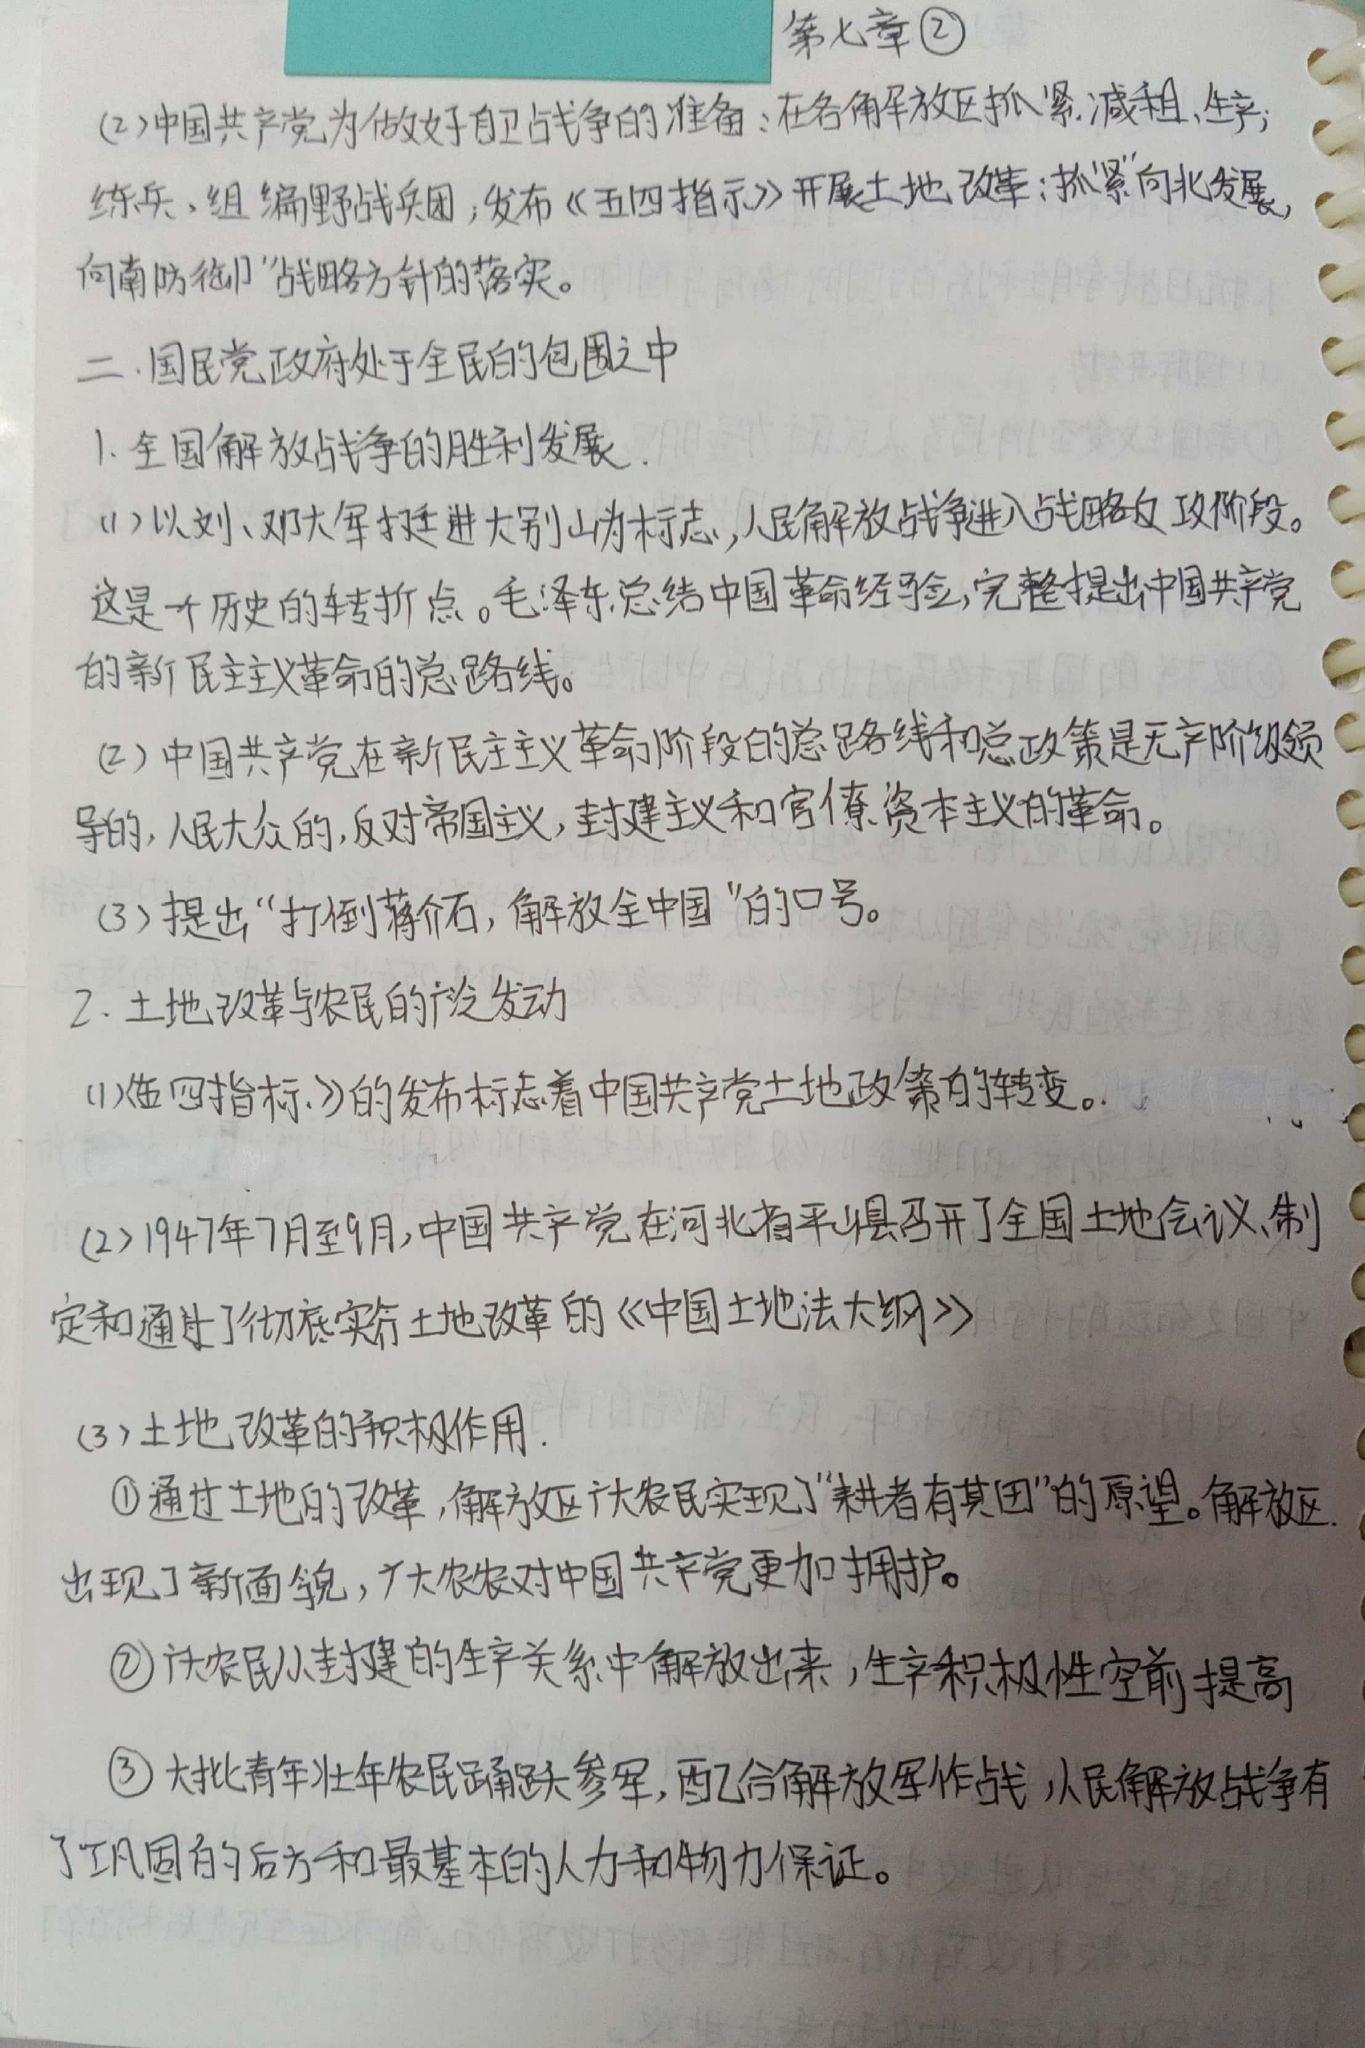 第七章②
(2)中国共产党为做好自卫战争的准备:在各解放区抓紧减租、生产;
练兵、组编野战兵团;发布《五四指示》开展土地改革;抓紧"向北发展,
向南防御"战略方针的落实。
二.国民党政府处于全民的包围之中
1.全国解放战争的胜利发展.
(1)以刘、邓大军挺进大别山为标志,人民解放战争进入战略反攻阶段。
这是一个历史的转折点。毛泽东总结中国革命经验,完整提出中国共产党
的新民主主义革命的总路线。
(2)中国共产党在新民主主义革命阶段的总路线和总政策是无产阶级领
导的,人民大众的,反对帝国主义,封建主义和官僚资本主义的革命。
(3)提出"打倒蒋介石,解放全中国"的口号。
2.土地改革与农民的广泛发动
(1)《五四指标》的发布标志着中国共产党土地政策的转变。
(2)1947年7月至9月,中国共产党在河北省平山县召开了全国土地会议、制
定和通过了彻底实行土地改革的《中国土地法大纲》
(3)土地改革的积极作用.
①通过土地的改革,解放区广大农民实现了"耕者有其田"的原望。解放区
出现了新面貌,广大农农对中国共产党更加拥护。
②广大农民从封建的生产关系中解放出来,生产积极性空前提高
③大批青年壮年农民踊跃参军,配合解放军作战,人民解放战争有
了巩固的后方和最基本的人力和物力保证。